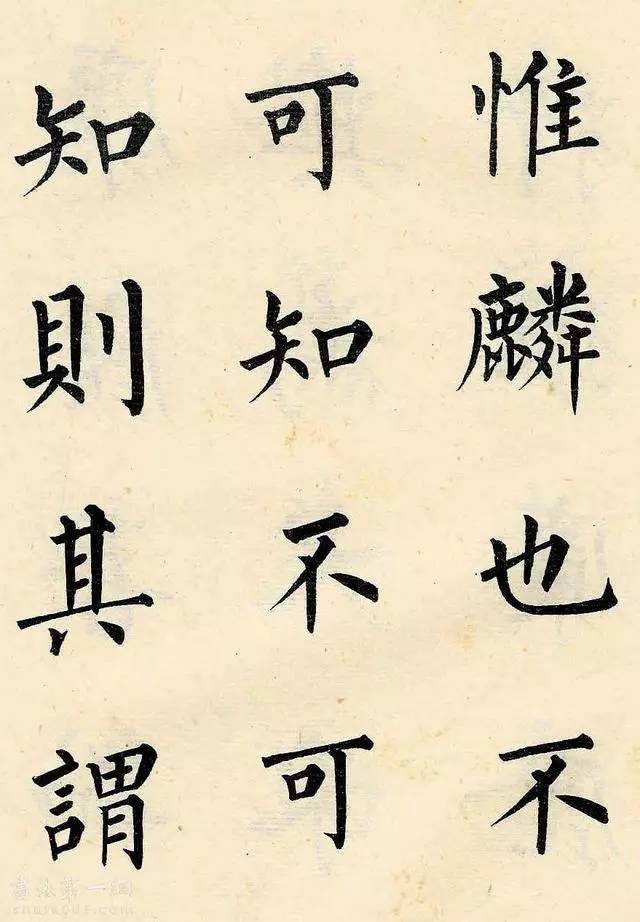 惟麟也不
可知不可
知則其謂
書法第一網
shufa001.com